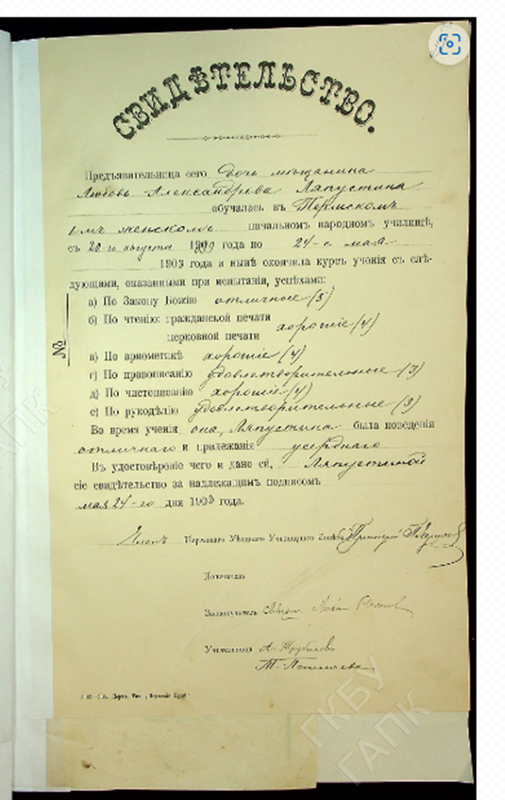 СВИДѢТЕЛЬСТВО.
Предъявительница сего Дочь мѣщанина
Любовь Александрова Ляпустина
обучалась въ Пермскомъ
женскомъ начальномъ народномъ училищѣ,
съ 20 го августа года по 24-е мая
1903 года и нынѣ окончила курсъ ученія съ слѣ-
дующими, оказанными при испытаніи, успѣхами:
№
а) По Закону Божію отличные (5)
б) По чтенію: гражданской печати
церковной печати хорошіе (4)
в) По ариѳметикѣ хорошіе (4)
г) По правописанію удовлетворительные (3)
д) По чистописанію хорошіе (4)
е) По рукодѣлію удовлетворительные (3)
Во время ученія она, Ляпустина была поведенія
отличнаго и прилежанія усерднаго
Въ удостовѣреніе чего и дано ей, Ляпустиной
сіе свидѣтельство за надлежащимъ подписомъ
мая 24-го дня 1903 года.
Членъ Пермскаго Уѣзднаго Училищнаго Совѣта
Законоучитель
Учительница
ГКБУ
ГАПК
ГКБУ
ГАПК